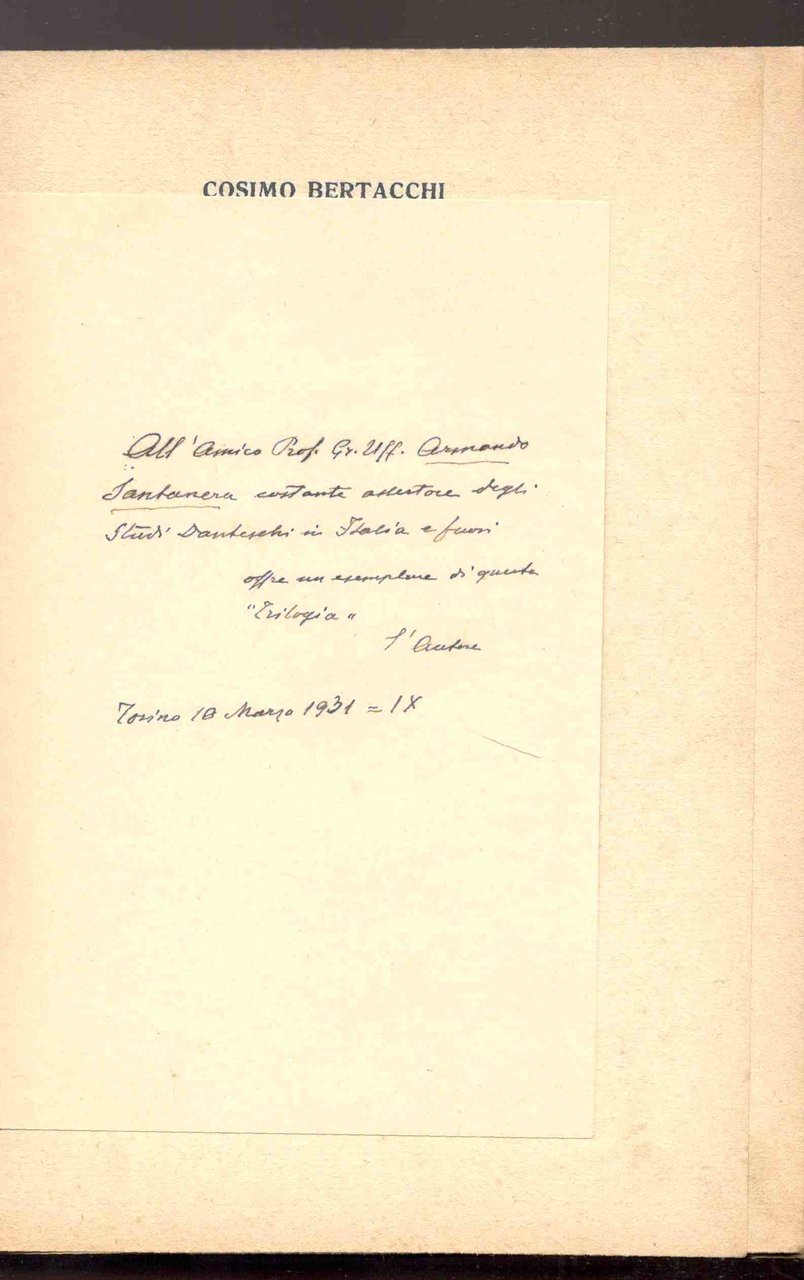 COSIMO BERTACCHI
All'Amico Prof. Gr. Uff. Armando
Santanera costante assertore degli
Studi Danteschi in Italia e fuori
offre un esemplare di questa
"Trilogia"
l'Autore
Torino 18 Marzo 1931 = IX